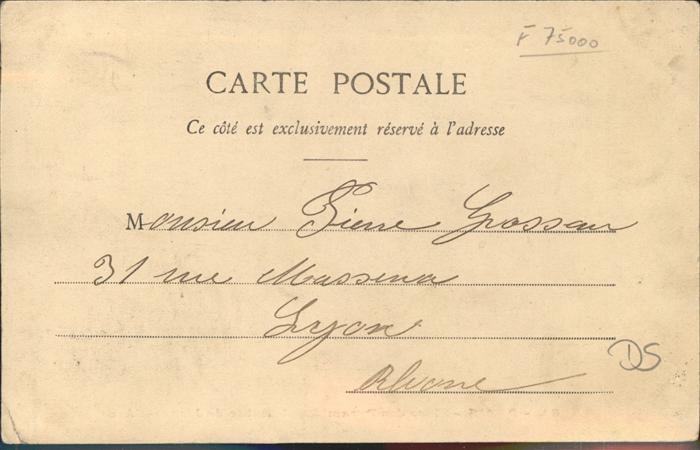 F 75000
CARTE POSTALE
Ce côté est exclusivement réservé à l'adresse
Monsieur Pierre Grosseau
31 rue Massena
Lyon
DS
Rhone